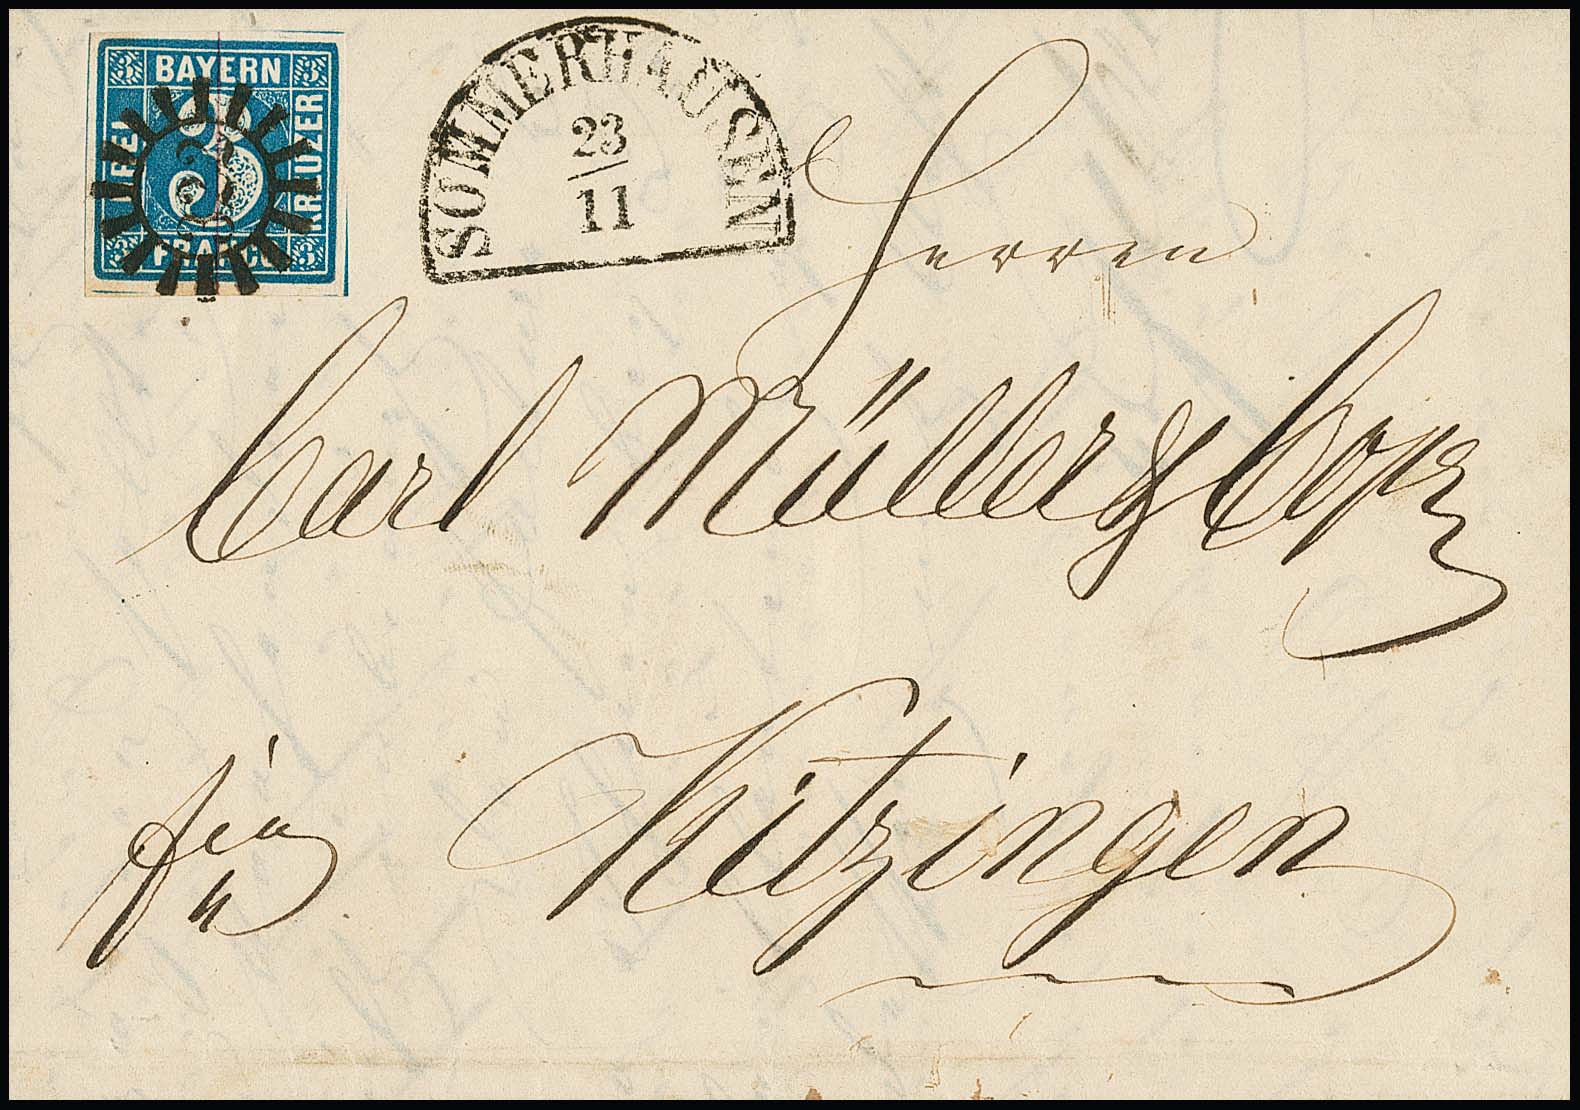 3 BAYERN 3
FREI
3
KREUZER
3 FRANCO 3
SOMMERHAUSEN
23
11
Herren
Carl Müller & Comp
in
Kitzingen